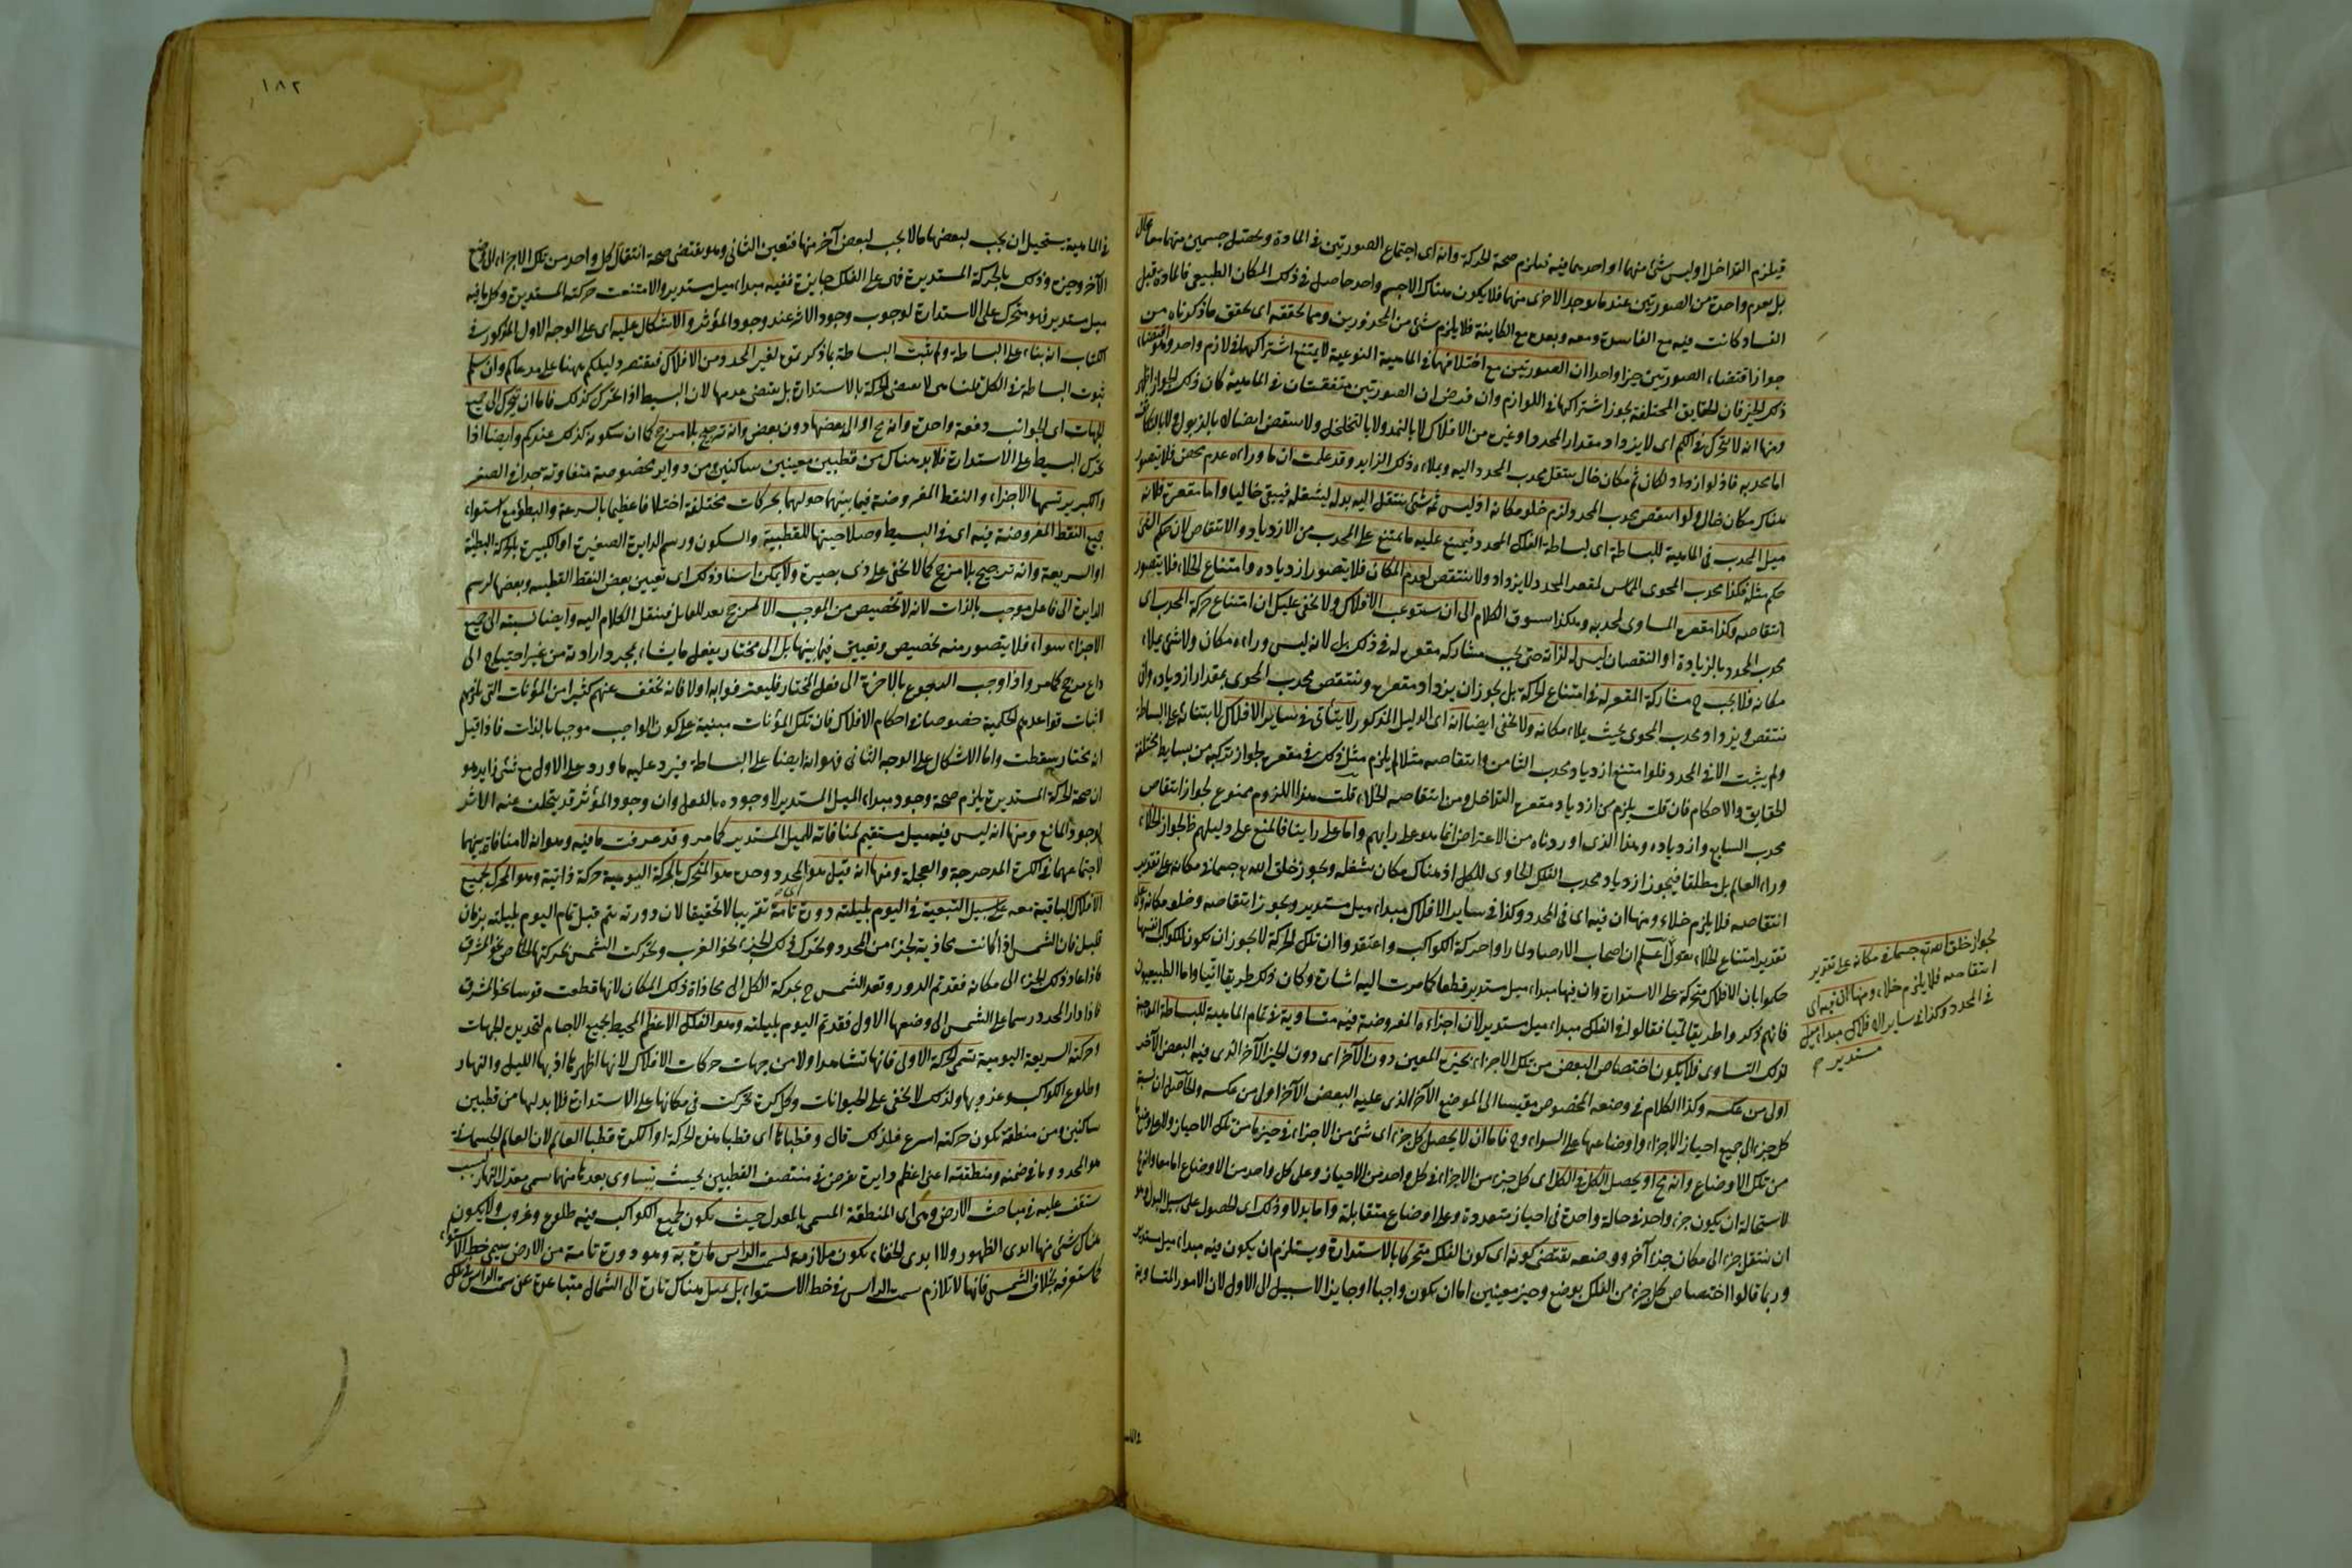 فيلزم التداخل او ليس شئ منهما او احديهما فيه فيلزم صحة الحركة وانه اى اجتماع الصورتين فى المادة وتحصل جسمين منهما معا محال
بل يعدم واحدة من الصورتين عند ما يوجد الاخرى منهما فلا يكون هناك الا جسم واحد حاصل فى ذلك المكان الطبيعى فالمادة قبل
الفساد كانت فيه مع الفاسدة ومعه وبعده مع الكاينة فلا يلزم شئ من المحذورين ومما يحققه اى يحقق ما ذكرناه من
جواز اقتضاء الصورتين حيزا واحدا ان الصورتين مع اختلافهما فى الماهية النوعية لا يمتنع اشتراكهما فى لازم واحد وهو اقتضاء
ذلك الحيز فان الحقايق المختلفة يجوز اشتراكها فى اللوازم وان فرض ان الصورتين متفقتان فى الماهية كان ذلك الجواز اظهر
ومنها انه لا يتحرك فى الكم اى لا يزداد مقدار المحدد او غيره من الافلاك لا بالنمو ولا بالتخلخل ولا ينتقص ايضا لا بالذبول ولا بالتكاثف
اما محدبه فاذ لو ازداد لكان ثم مكان خال ينتقل محدب المحدد اليه ويملاءه ذلك الزايد وقد علمت ان ما وراءه عدم محض فلا يتصور
هناك مكان خال ولو انتقص محدب المحدد لزم خلو مكانه اذ ليس ثم شئ ينتقل اليه بدله ليشغله فيبقى خاليا واما مقعره فلانه
مثل المحدب فى الماهية للبساطة اى لبساطة الفلك المحدد فيمتنع عليه ما يمتنع على المحدب من الازدياد والانتقاص لان حكم الشئ
حكم مثله فكذا محدب المحوى المماس لمقعر المحدد لا يزداد ولا ينتقص لعدم المكان فلا يتصور ازدياده وامتناع الخلاء فلا يتصور
انتقاصه وكذا مقعره المساوى لمحدبه وهكذا يسوق الكلام الى ان يستوعب الافلاك ولا يخفى عليك ان امتناع حركة المحدب اى
محدب المحدد بالزيادة او النقصان ليس له لذاته حتى يجب مشاركة مقعره له فى ذلك بل لانه ليس وراءه مكان ولا شئ يملاء
مكانه فلا يجب ح مشاركة المقعر له فى امتناع الحركة بل يجوز ان يزداد مقعره وينتقص محدب المحوى بمقدار ازدياده وان
ينتقص ويزداد محدب المحوى بحيث يملاء مكانه ولا يخفى ايضا انه اى الدليل المذكور لا يتأتى فى ساير الافلاك لابتنائه على البساطة
ولم يثبت الا فى المحدد فلو امتنع ازدياد محدب الثامن وانتقاصه مثلا لم يلزم مثل ذلك فى مقعره لجواز تركبه من بسايط مختلفة
الحقايق والاحكام فان قلت يلزم من ازدياد مقعره التداخل ومن انتقاصه الخلاء قلت هذا اللزوم ممنوع لجواز انتقاص
محدب السابع وازدياده وهذا الذى اوردناه من الاعتراض انما هو على رايهم واما على راينا فالمنع على دليلهم ظ لجواز الخلاء
وراء العالم بل مطلقا فيجوز ازدياد محدب الفلك الحاوى للكل اذ هناك مكان يشغله ويجوز خلق الله تع جسما فى مكانه على تقدير
انتقاصه فلا يلزم خلاء ومنها ان فيه اى فى المحدد وكذا فى ساير الافلاك مبداء ميل مستدير ويجوز انتقاصه وخلو مكانه على
تقدير امتناع الخلاء يقول اعلم ان اصحاب الارصاد لما راوا حركة الكواكب واعتقدوا ان تلك الحركة لا يجوز ان يكون للكواكب انفسها
حكموا بان الافلاك متحركة على الاستدارة وان فيها مبداء ميل مستدير قطعا كما مرت اليه اشارة وكان ذلك طريقا انّيا واما الطبيعيون
فانهم ذكروا طريقا لميا فقالوا فى الفلك مبداء ميل مستدير لان اجزاءه المفروضة فيه متساوية فى تمام الماهية للبساطة الموجبة
لذلك التساوى فلا يكون اختصاص البعض من تلك الاجزاء بحيزه المعين دون الآخر اى دون الحيز الآخر الذى فيه البعض الآخر
اولى من عكسه وكذا الكلام فى وضعه المخصوص مقيسا الى الموضع الآخر الذى عليه البعض الآخر اولى من عكسه والحاصل ان نسبة
كل جزء الى جميع احياز الاجزاء واوضاعها على السواء وح فاما ان لا يحصل كل جزء اى شئ من الاجزاء فى حيز ما من تلك الاحياز ولا على وضع ما
من تلك الاوضاع وانه مح او يحصل الكل فى الكل اى كل جزء من الاجزاء فى كل واحد من الاحياز وعلى كل واحد من الاوضاع اما معا وانها
لاستحالة ان يكون جزء واحد فى حالة واحدة فى احياز متعددة وعلى اوضاع متقابلة واما بدلا وذلك اى الحصول على سبيل البدل وهو
ان ينتقل جزء الى مكان جزء آخر ووضعه يقتضى كونه اى كون الفلك متحركا بالاستدارة ويستلزم ان يكون فيه مبداء ميل مستدير
وربما قالوا اختصاص كل جزء من الفلك بوضع وحيز معينين اما ان يكون واجبا او جايزا لا سبيل الى الاول لان الامور المتساوية
لجواز خلق الله تع جسما فى مكانه على تقدير
انتقاصه فلا يلزم خلاء ومنها ان فيه اى
فى المحدد وكذا فى ساير الافلاك مبداء ميل
مستدير م
١٨٢
فى الماهية يستحيل ان يجب لبعضها ما لا يجب لبعض آخر منها فتعين الثانى وهو يقتضى صحة انتقال كل واحد من تلك الاجزاء الى وضع
الآخر وحيزه وذلك بالحركة المستديرة فهى على الفلك جايزة ففيه مبداء ميل مستدير والا امتنعت حركته المستديرة وكل ما فيه
ميل مستدير فهو متحرك على الاستدارة لوجوب وجود الاثر عند وجود المؤثر والاشكال عليه اى على الوجه الاول المذكور فى
الكتاب انه بناء على البساطة ولم تثبت البساطة بما ذكرتموه لغير المحدد من الافلاك فيقتصر دليلكم ههنا على مدعاكم وان سلم
ثبوت البساطة فى الكل قلنا هى لا تقتضى الحركة بالاستدارة بل يقتضى عدمها لان البسيط اذا تحرك كذلك فاما ان يتحرك الى جميع
الجهات اى الجوانب دفعة واحدة وانه مح او الى بعضها دون بعض وانه ترجيح بلا مرجح كما ان سكونه كذلك عندكم وايضا اذا
تحرك البسيط على الاستدارة فلا بد هناك من قطبين معينين ساكنين ومن دواير مخصوصة متفاوتة جدا فى الصغر
والكبر يرتسمها الاجزاء والنقط المفروضة فيما بينهما حولهما بحركات مختلفة اختلافا عظيما بالسرعة والبطؤ مع استواء
جميع النقط المفروضة فيه اى فى البسيط وصلاحيتها للقطبية والسكون ورسم الدايرة الصغيرة او الكبيرة بالحركة البطيئة
او السريعة وانه ترجيح بلا مرجح كما لا يخفى على ذى بصيرة ولا يمكن اسناد ذلك اى تعيين بعض النقط للقطبية وبعضها لرسم
الدايرة الى فاعل موجب بالذات لانه لا تخصيص من الموجب الا لمرجح يعد للقابل فينقل الكلام اليه وايضا نسبته الى جميع
الاجزاء سواء فلا يتصور منه تخصيص وتعيين فيما بينها بل الى مختار يفعل ما يشاء بمجرد ارادته من غير احتياج الى
داع مرجح كما مر واذا وجب الرجوع بالاخرة الى فعل المختار فليعترفوا به اولا فانه يخفف عنهم كثيرا من المؤنات التى يلزمهم
اثبات قواعدهم الحكمية خصوصا فى احكام الافلاك فان تلك المؤنات مبنية على كون الواجب موجبا بالذات فاذا قيل
انه مختار سقطت واما الاشكال على الوجه الثانى فهو انه ايضا على البساطة فيرد عليه ما ورد على الاول مع شئ زايد هو
ان صحة الحركة المستديرة يلزم صحة وجود مبداء الميل المستدير لا وجوده بالفعل وان وجود المؤثر قد يتخلف عنه الاثر
لوجود المانع ومنها انه ليس فيه ميل مستقيم لمنافاته للميل المستدير كما مر وقد عرفت ما فيه وهو انه لا منافاة بينهما
لاجتماعهما فى الكرة المدحرجة والعجلة ومنها انه قيل هو المحدد وحده هو المتحرك بالحركة اليومية حركة ذاتية وهو المحرك لجميع
الافلاك الباقية معه على سبيل التبعية فى اليوم بليلته دورة تامة تقريبا لا تحقيقا لان دورته يتم قبل تمام اليوم بليلته بزمان
قليل فان الشمس اذا كانت محاذية لجزء من المحدد وتحرك ذلك الجزء نحو الغرب وتحركت الشمس بحركتها الخاص نحو المشرق
فاذا عاد ذلك الجزء الى مكانه فقد تم الدور وتعد الشمس ح بحركة الكل الى محاذاة ذلك المكان لانها قطعت قوسا نحو المشرق
فاذا دار المحدد رسما على الشمس الى وضعها الاول فقد تم اليوم بليلته وهو الفلك الاعظم المحيط بجميع الاجسام لتحديده الجهات
وحركته السريعة اليومية تسمى الحركة الاولى فانها تشاهد اولا من جهات حركات الافلاك لانها اظهرها اذ بها الليل والنهار
وطلوع الكواكب وغروبها ولذلك لا يخفى على الحيوانات وكل كرة تحركت فى مكانها على الاستدارة فلا بد لها من قطبين
ساكنين ومن منطقة يكون حركته اسرع فلذلك قال وقطباها اى قطبا هذه الحركة او الكرة قطبا العالم لان العالم الجسمانى
هو المحدد وما فى ضمنه ومنطقته اعنى اعظم دايرة تفرض فى منتصف القطبين بحيث يتساوى بعدها منهما تسمى معدل النهار لسبب
ستقف عليه فى مباحث الارض وهى اى المنطقة المسمى بالمعدل حيث يكون لجميع الكواكب فيه طلوع وغروب ولا يكون
هناك شئ منها ابدى الظهور ولا ابدى الخفاء يكون ملازمة لسمت الراس مارة به وهو دورة تامة من الارض يسمى خط الاستواء
كما ستعرفه بخلاف الشمس فانها لا تلازم سمت الراس فى خط الاستواء بل يميل هناك تارة الى الشمال متباعدة عن سمت الراس